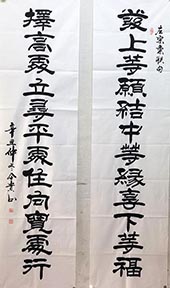 左宗棠聯句
發上等願結中等緣享下等福
擇高處立尋平處住向寬處行